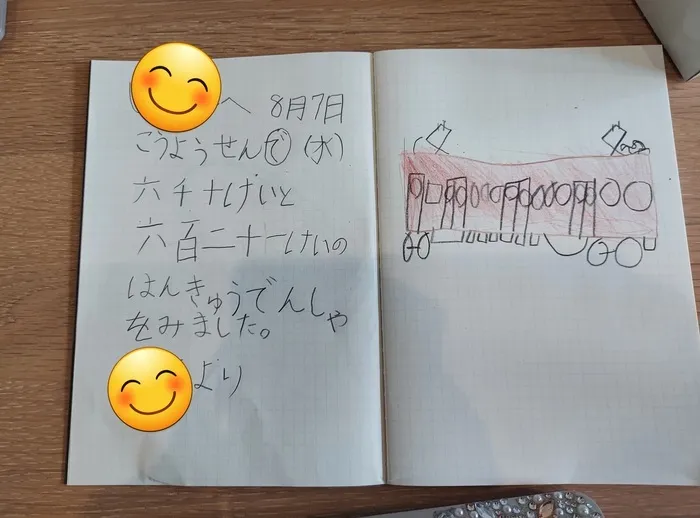 へ 8月7日
こうようせんで (水)
六千十けいと
六百二十一けいの
はんきゅうでんしゃ
をみました。
より